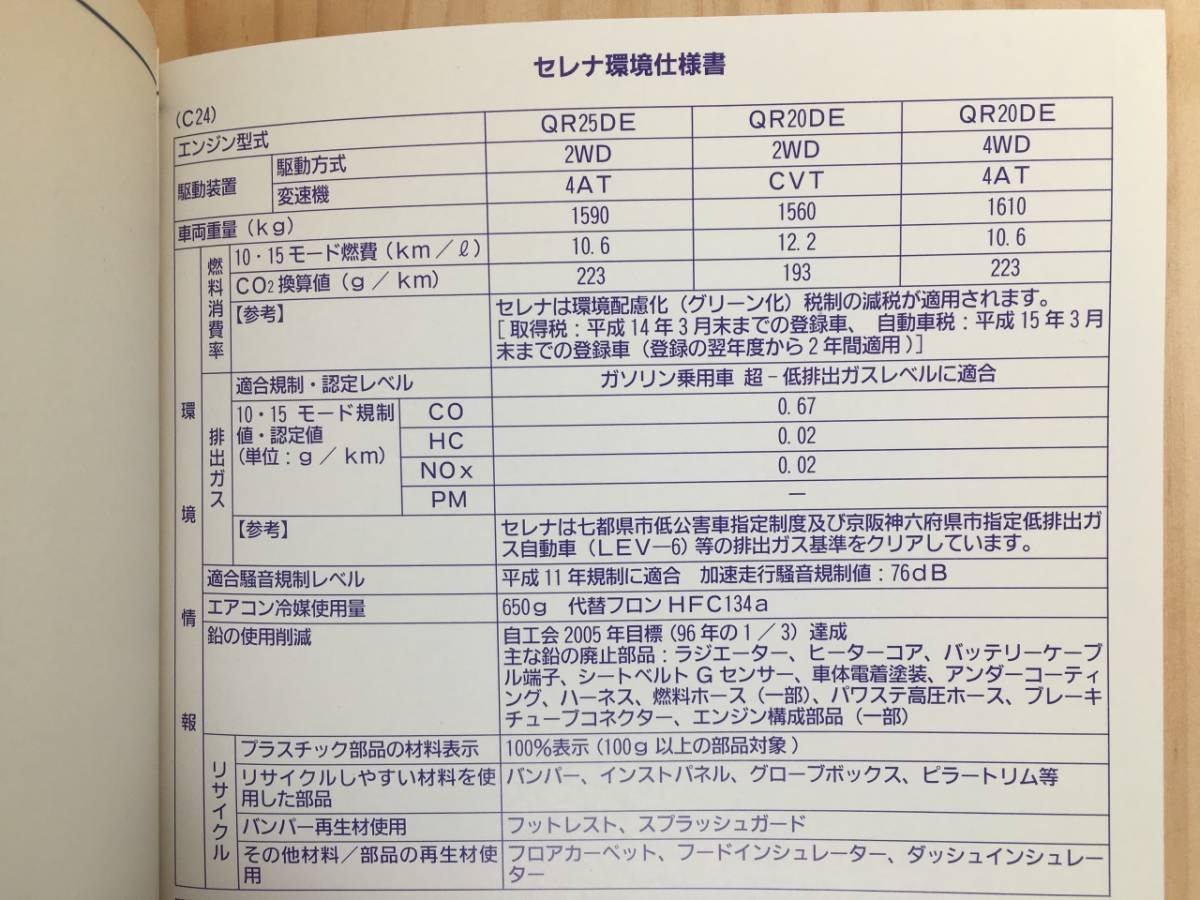 セレナ環境仕様書
(C24)
エンジン型式 QR25DE QR20DE QR20DE
駆動装置 駆動方式 2WD 2WD 4WD
変速機 4AT CVT 4AT
車両重量(kg) 1590 1560 1610
環境情報
燃料消費率
10・15モード燃費(km/ℓ) 10.6 12.2 10.6
CO2換算値(g/km) 223 193 223
【参考】 セレナは環境配慮化(グリーン化)税制の減税が適用されます。
[取得税:平成14年3月末までの登録車、自動車税:平成15年3月
末までの登録車(登録の翌年度から2年間適用)]
排出ガス
適合規制・認定レベル ガソリン乗用車 超-低排出ガスレベルに適合
10・15モード規制 CO 0.67
値・認定値 HC 0.02
(単位:g/km) NOx 0.02
PM −
【参考】 セレナは七都県市低公害車指定制度及び京阪神六府県市指定低排出ガ
ス自動車(LEV−6)等の排出ガス基準をクリアしています。
適合騒音規制レベル 平成11年規制に適合 加速走行騒音規制値:76dB
エアコン冷媒使用量 650g 代替フロンHFC134a
鉛の使用削減 自工会2005年目標(96年の1/3)達成
主な鉛の廃止部品:ラジエーター、ヒーターコア、バッテリーケーブ
ル端子、シートベルトGセンサー、車体電着塗装、アンダーコーティ
ング、ハーネス、燃料ホース(一部)、パワステ高圧ホース、ブレーキ
チューブコネクター、エンジン構成部品(一部)
リサイクル
プラスチック部品の材料表示 100%表示(100g以上の部品対象)
リサイクルしやすい材料を使 バンパー、インストパネル、グローブボックス、ピラートリム等
用した部品
バンパー再生材使用 フットレスト、スプラッシュガード
その他材料/部品の再生材使 フロアカーペット、フードインシュレーター、ダッシュインシュレー
用 ター